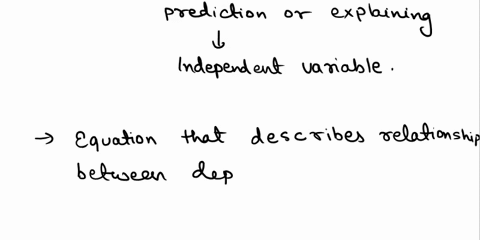 prediction or explaining
↓
Independent variable.
→ Equation that describes relationship
between dep